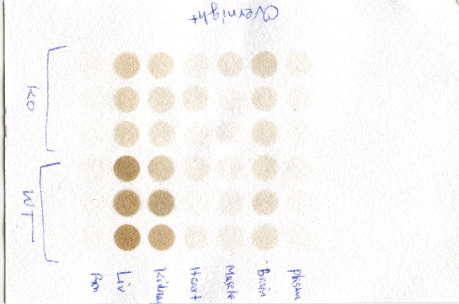 Overnight
KO
WT
Pan
Liv
Kidney
Heart
Muscle
Brain
Plasma